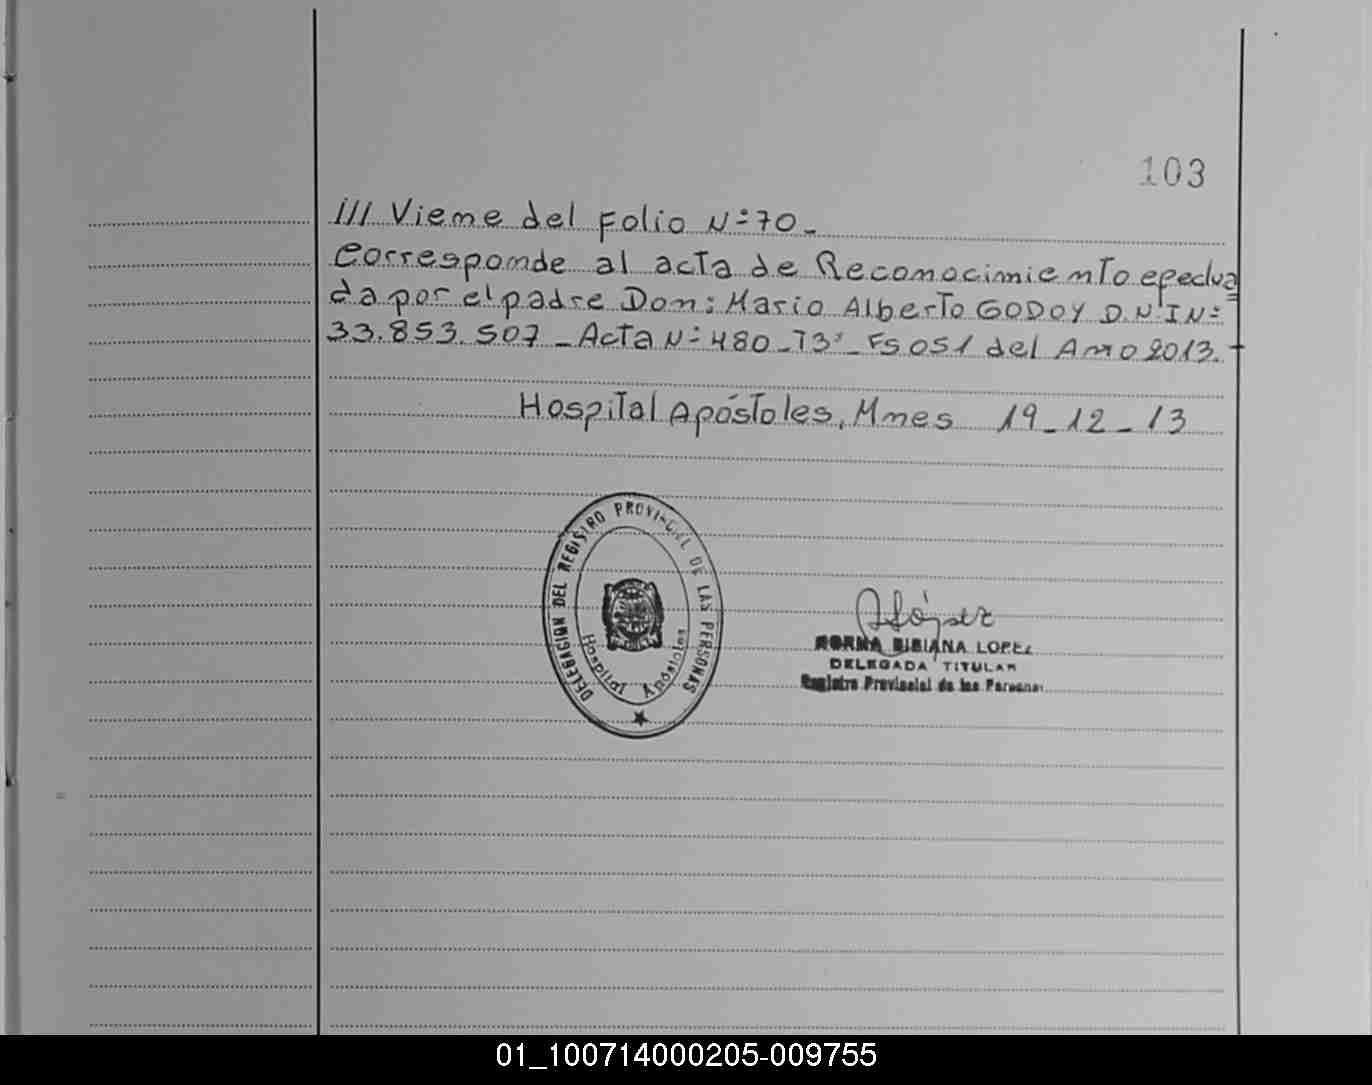 103
/// Viene del Folio Nº 70.-
Corresponde al acta de Reconocimiento efectua
da por el padre Don: Mario Alberto GODOY D.N.I Nº
33.853.507 - Acta Nº 480 - T3º - FS 051 del Año 2013.-
Hospital Apóstoles, Mnes 19-12-13
DELEGACION DEL REGISTRO PROVINCIAL DE LAS PERSONAS
Hospital Apóstoles
NORMA BIBIANA LOPEZ
DELEGADA TITULAR
Registro Provincial de las Personas
01_100714000205-009755